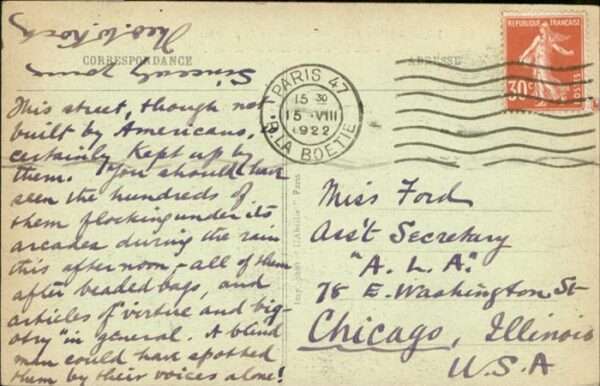 CORRESPONDANCE
ADRESSE
This street, though not
built by Americans, is
certainly kept up by
them. You should have
seen the hundreds of
them flocking under its
arcades during the rain
this afternoon - all of them
after beaded bags, and
articles of virtue and "big-
otry" in general. A blind
man could have spotted
them by their voices alone!
Sincerely yours
Theo. W. Koch
PARIS 47
15 30
15 · VIII
1922
R. LA BOETIE
REPUBLIQUE FRANÇAISE
30c
POSTES
Miss Ford
Ass't Secretary
"A. L. A."
78 E. Washington St
Chicago, Illinois
U.S.A